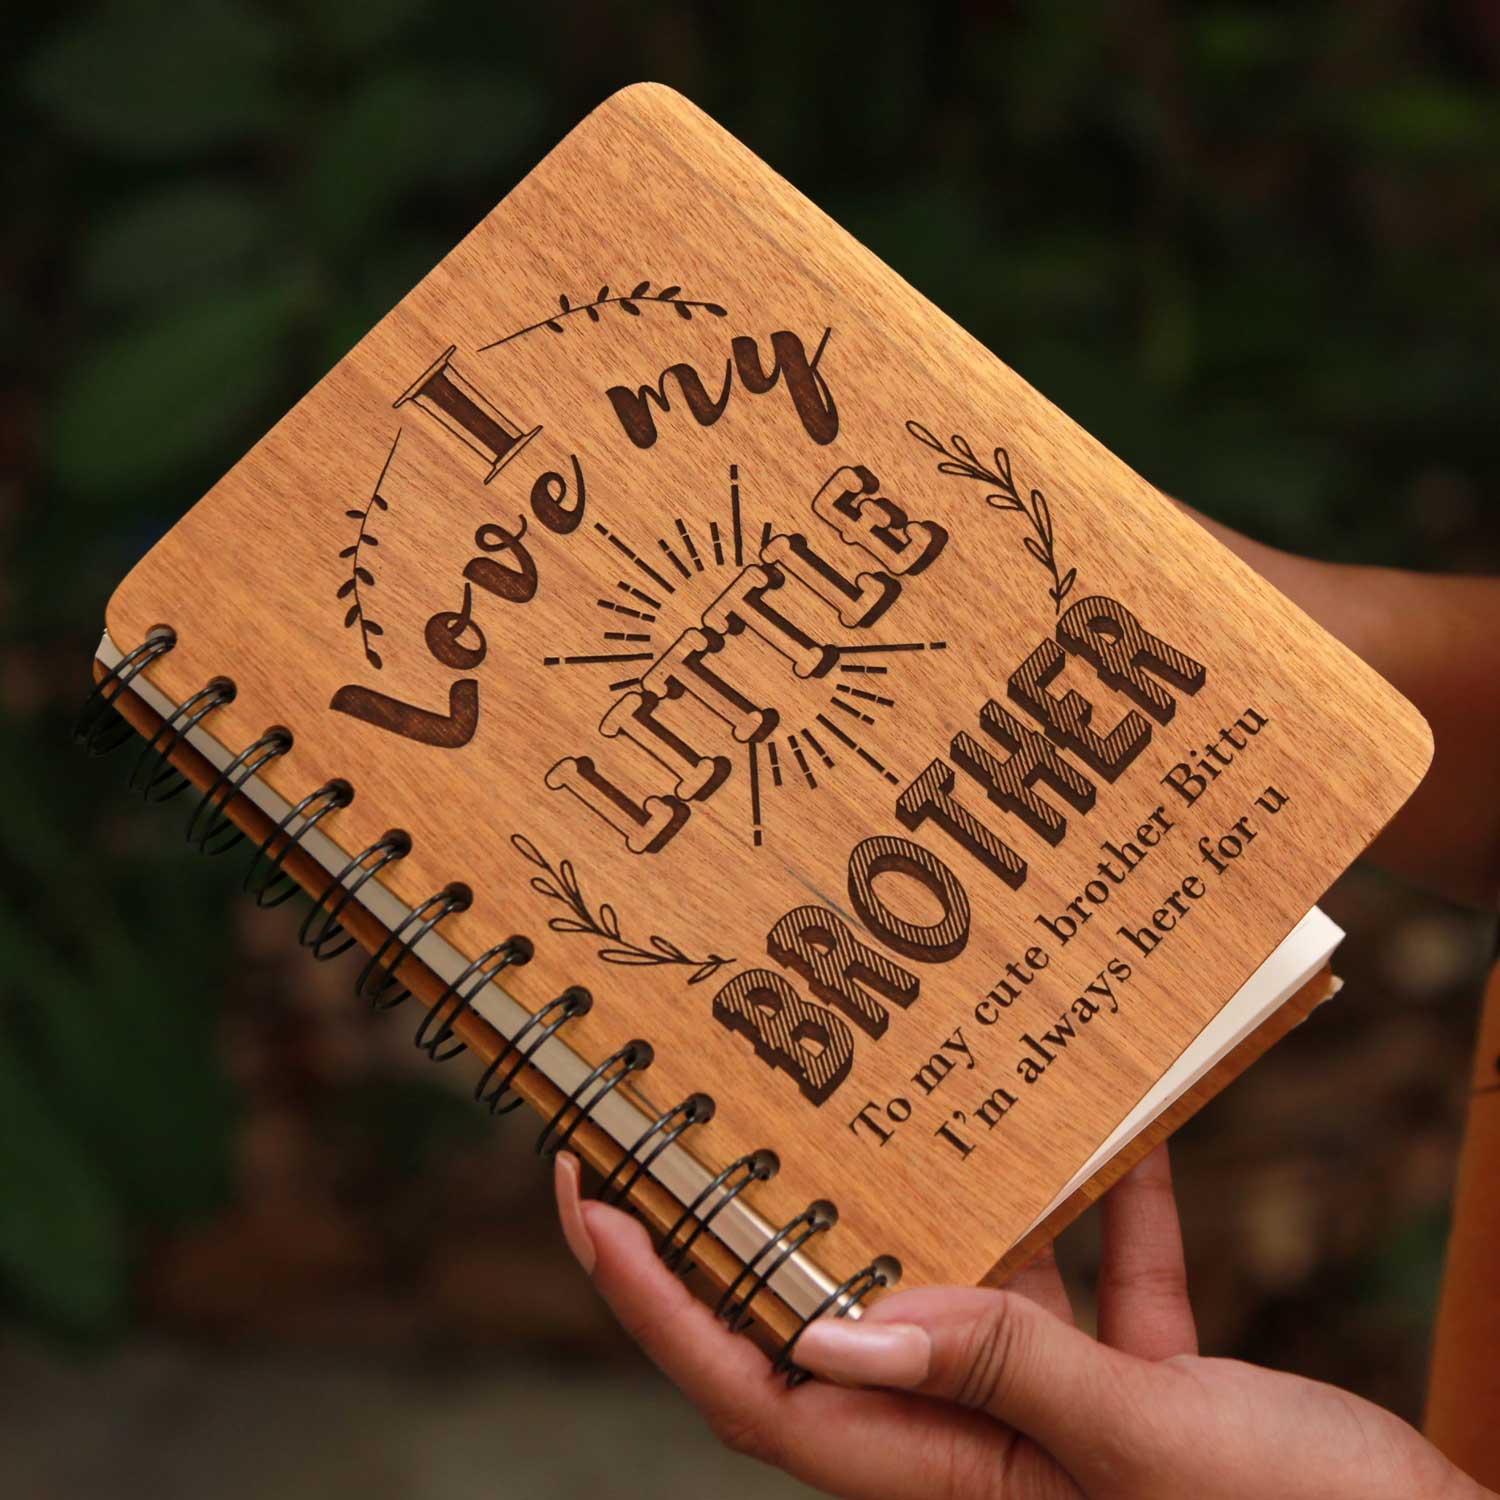 I
Love my
LITTLE
BROTHER
To my cute brother Bittu
I'm always here for u